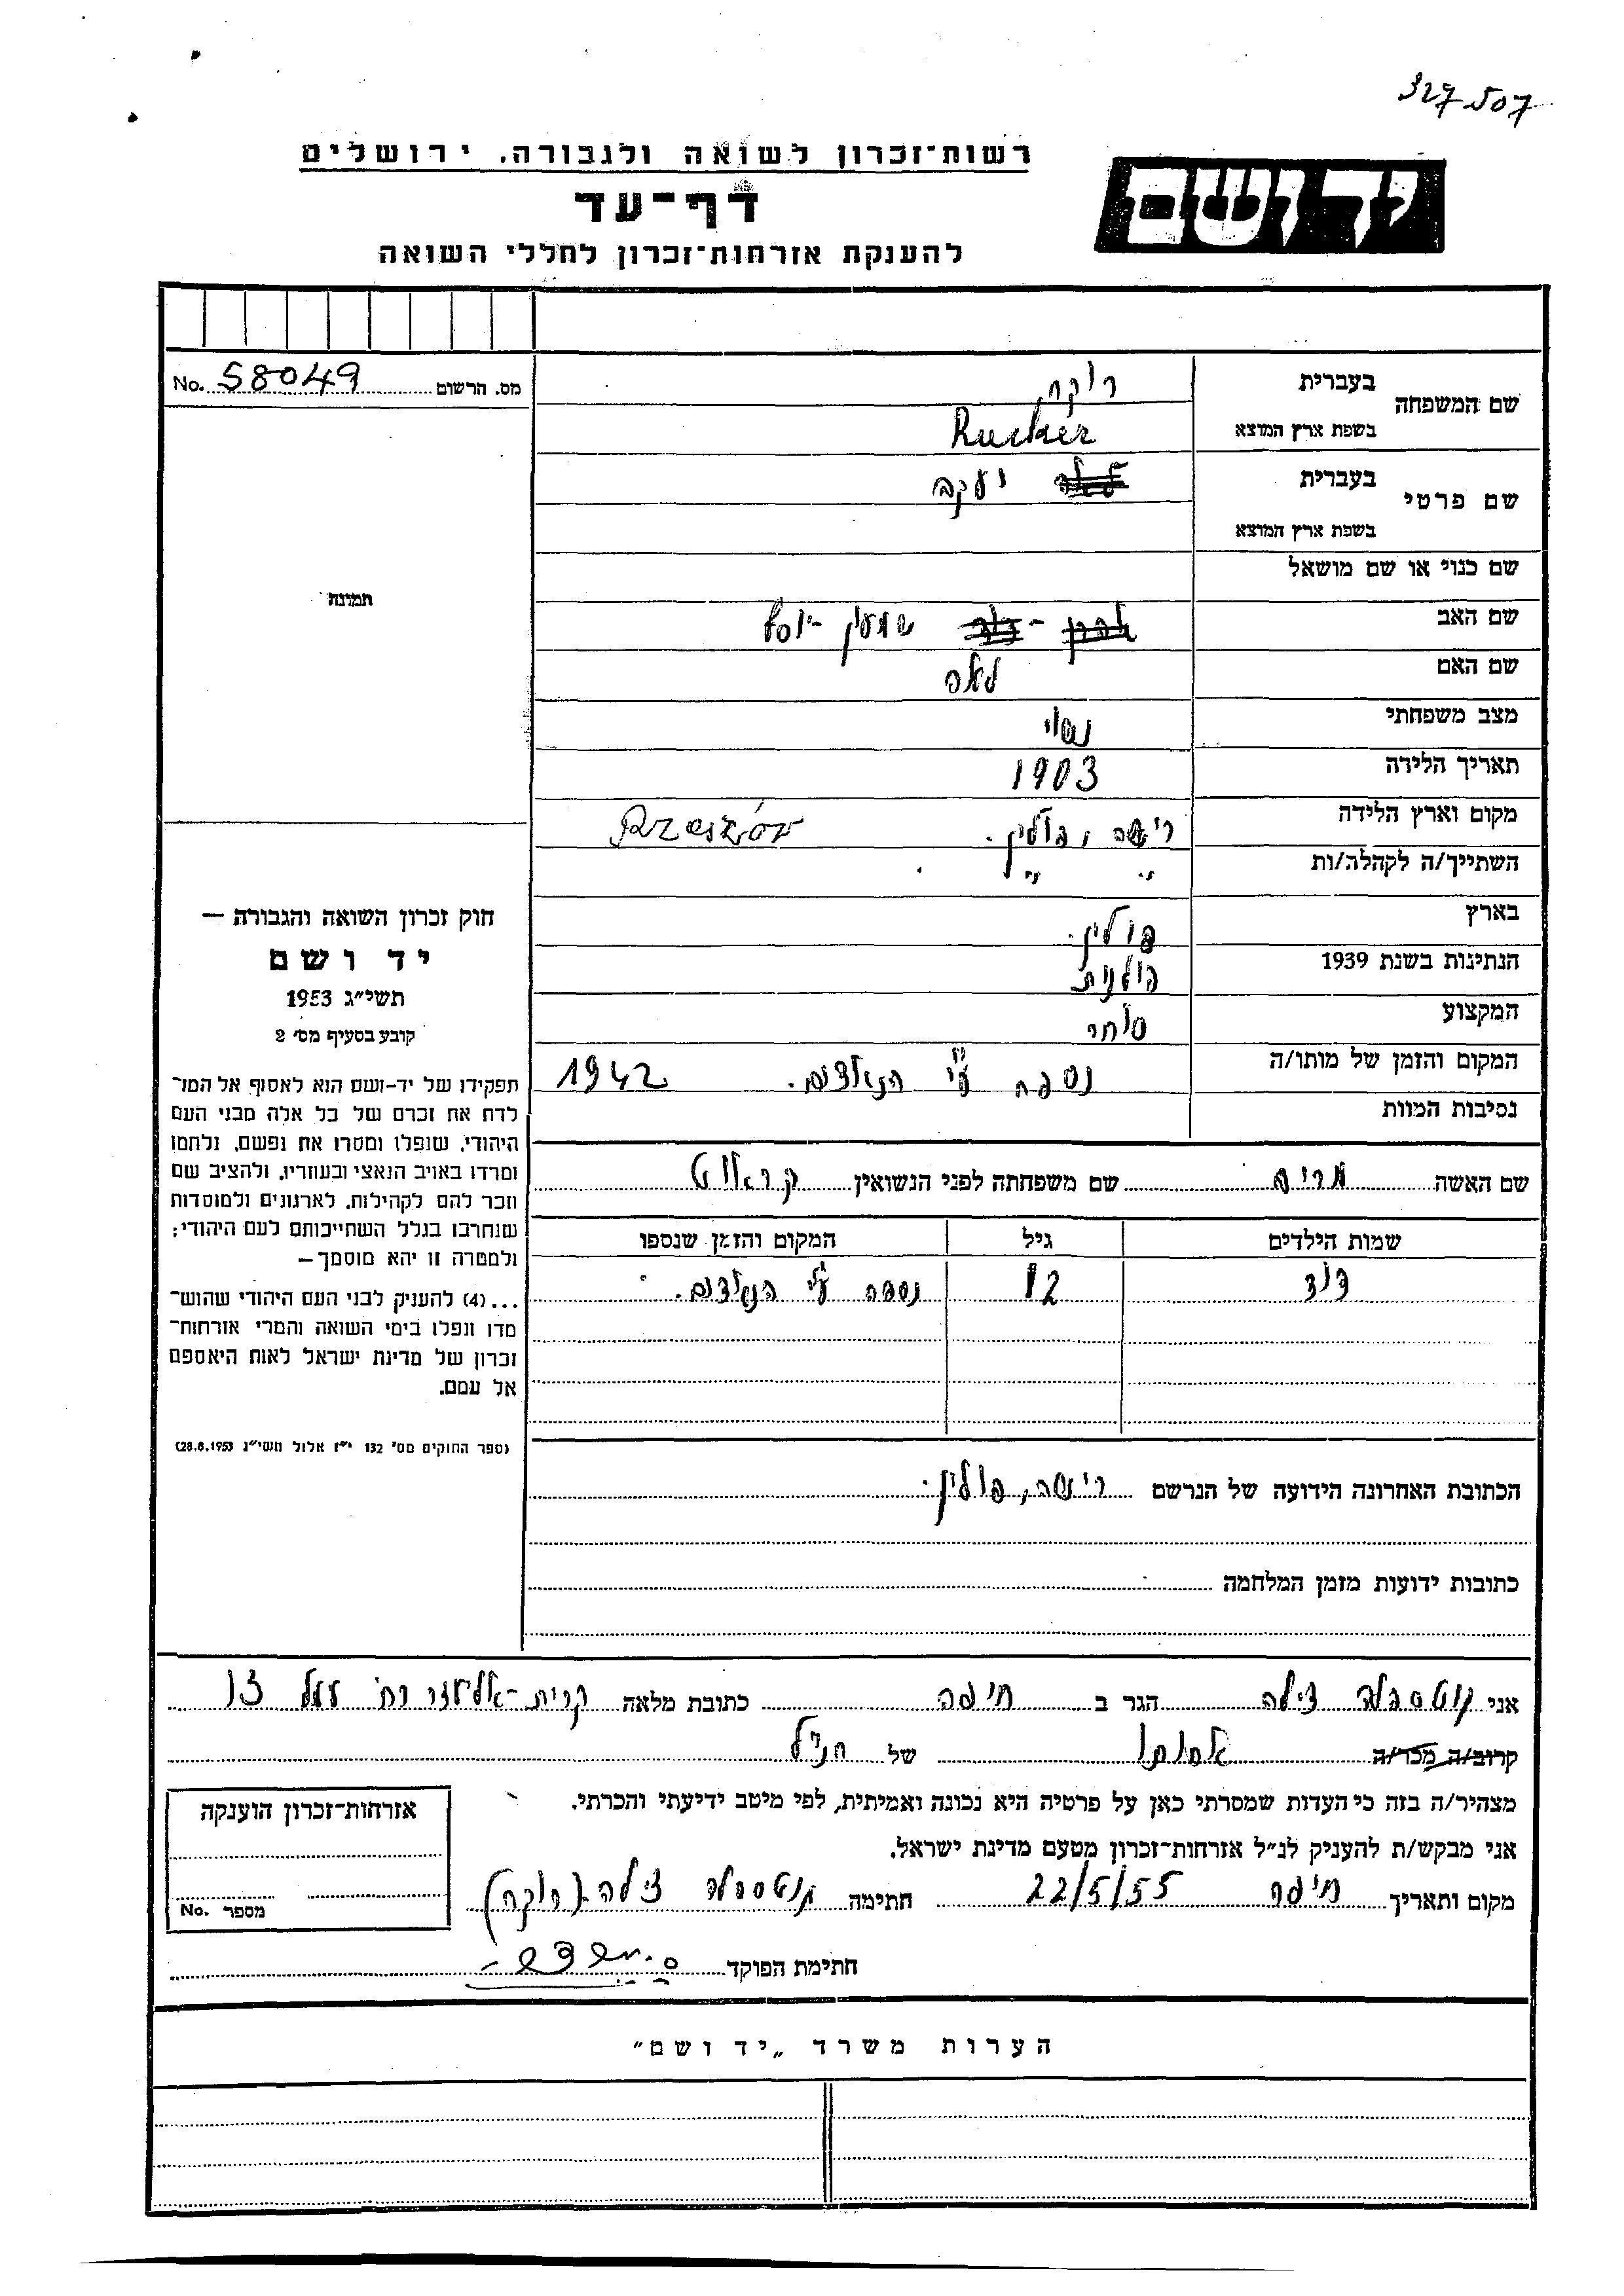 327507
רשות־זכרון לשואה ולגבורה, ירושלים
יד ושם
דף־עד
להענקת אזרחות־זכרון לחללי השואה
מס. הרשום 58049 No.
שם המשפחה בעברית רוקח
בשפת ארץ המוצא Rucker
שם פרטי בעברית יעקב
בשפת ארץ המוצא
שם כנוי או שם מושאל
שם האב שמעון - יוסף
שם האם לאה
מצב משפחתי נשוי
תאריך הלידה 1903
מקום וארץ הלידה רישה, פולין. Rzeszów
השתייך/ה לקהלה/ות " " "
בארץ פולין.
הנתינות בשנת 1939 פולנית
המקצוע סוחר
המקום והזמן של מותו/ה נספה ע"י הנאצים. 1942
נסיבות המוות
שם האשה מרים שם משפחתה לפני הנשואין
שמות הילדים גיל המקום והזמן שנספו
דוד 12 נספה ע"י הנאצים.
הכתובת האחרונה הידועה של הנרשם רישה, פולין.
כתובות ידועות מזמן המלחמה
תמונה
חוק זכרון השואה והגבורה —
יד ושם
תשי״ג 1953
קובע בסעיף מס׳ 2
תפקידו של יד-ושם הוא לאסוף אל המו־
לדת את זכרם של כל אלה מבני העם
היהודי, שנפלו ומסרו את נפשם, נלחמו
ומרדו באויב הנאצי ובעוזריו, ולהציב שם
וזכר להם לקהילות, לארגונים ולמוסדות
שנחרבו בגלל השתייכותם לעם היהודי;
ולמטרה זו יהא מוסמך—
...(4) להעניק לבני העם היהודי שהוש־
מדו ונפלו בימי השואה והמרי אזרחות־
זכרון של מדינת ישראל לאות היאספם
אל עמם.
(ספר החוקים מס׳ 132 י״ז אלול תשי״ג 28.8.1953)
אני צילה הגר ב חיפה כתובת מלאה קרית-אליעזר רח'
קרוב/ה מכר/ה אחותו של הנ"ל
מצהיר/ה בזה כי העדות שמסרתי כאן על פרטיה היא נכונה ואמיתית, לפי מיטב ידיעתי והכרתי.
אני מבקש/ת להעניק לנ״ל אזרחות־זכרון מטעם מדינת ישראל.
מקום ותאריך חיפה 22/5/55 חתימה צילה (רוקח)
חתימת הפוקד
אזרחות־זכרון הוענקה
מספר No.
הערות משרד „יד ושם״